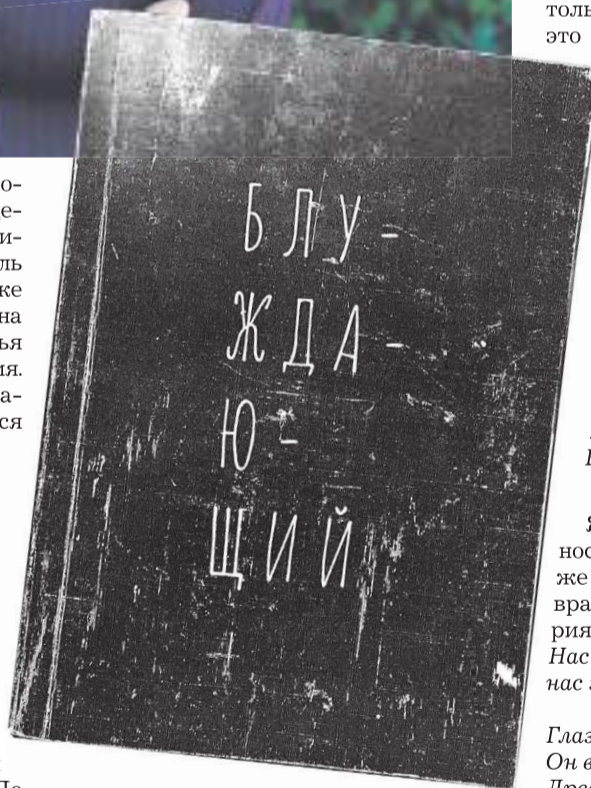 толь
это
о-
е-
и-
ль
ке
на
ья
ия.
а-
ся
БЛУ-
ЖДА-
Ю-
ЩИЙ
нос
же
вра
рия
Нас
нас
Глаз
Он в